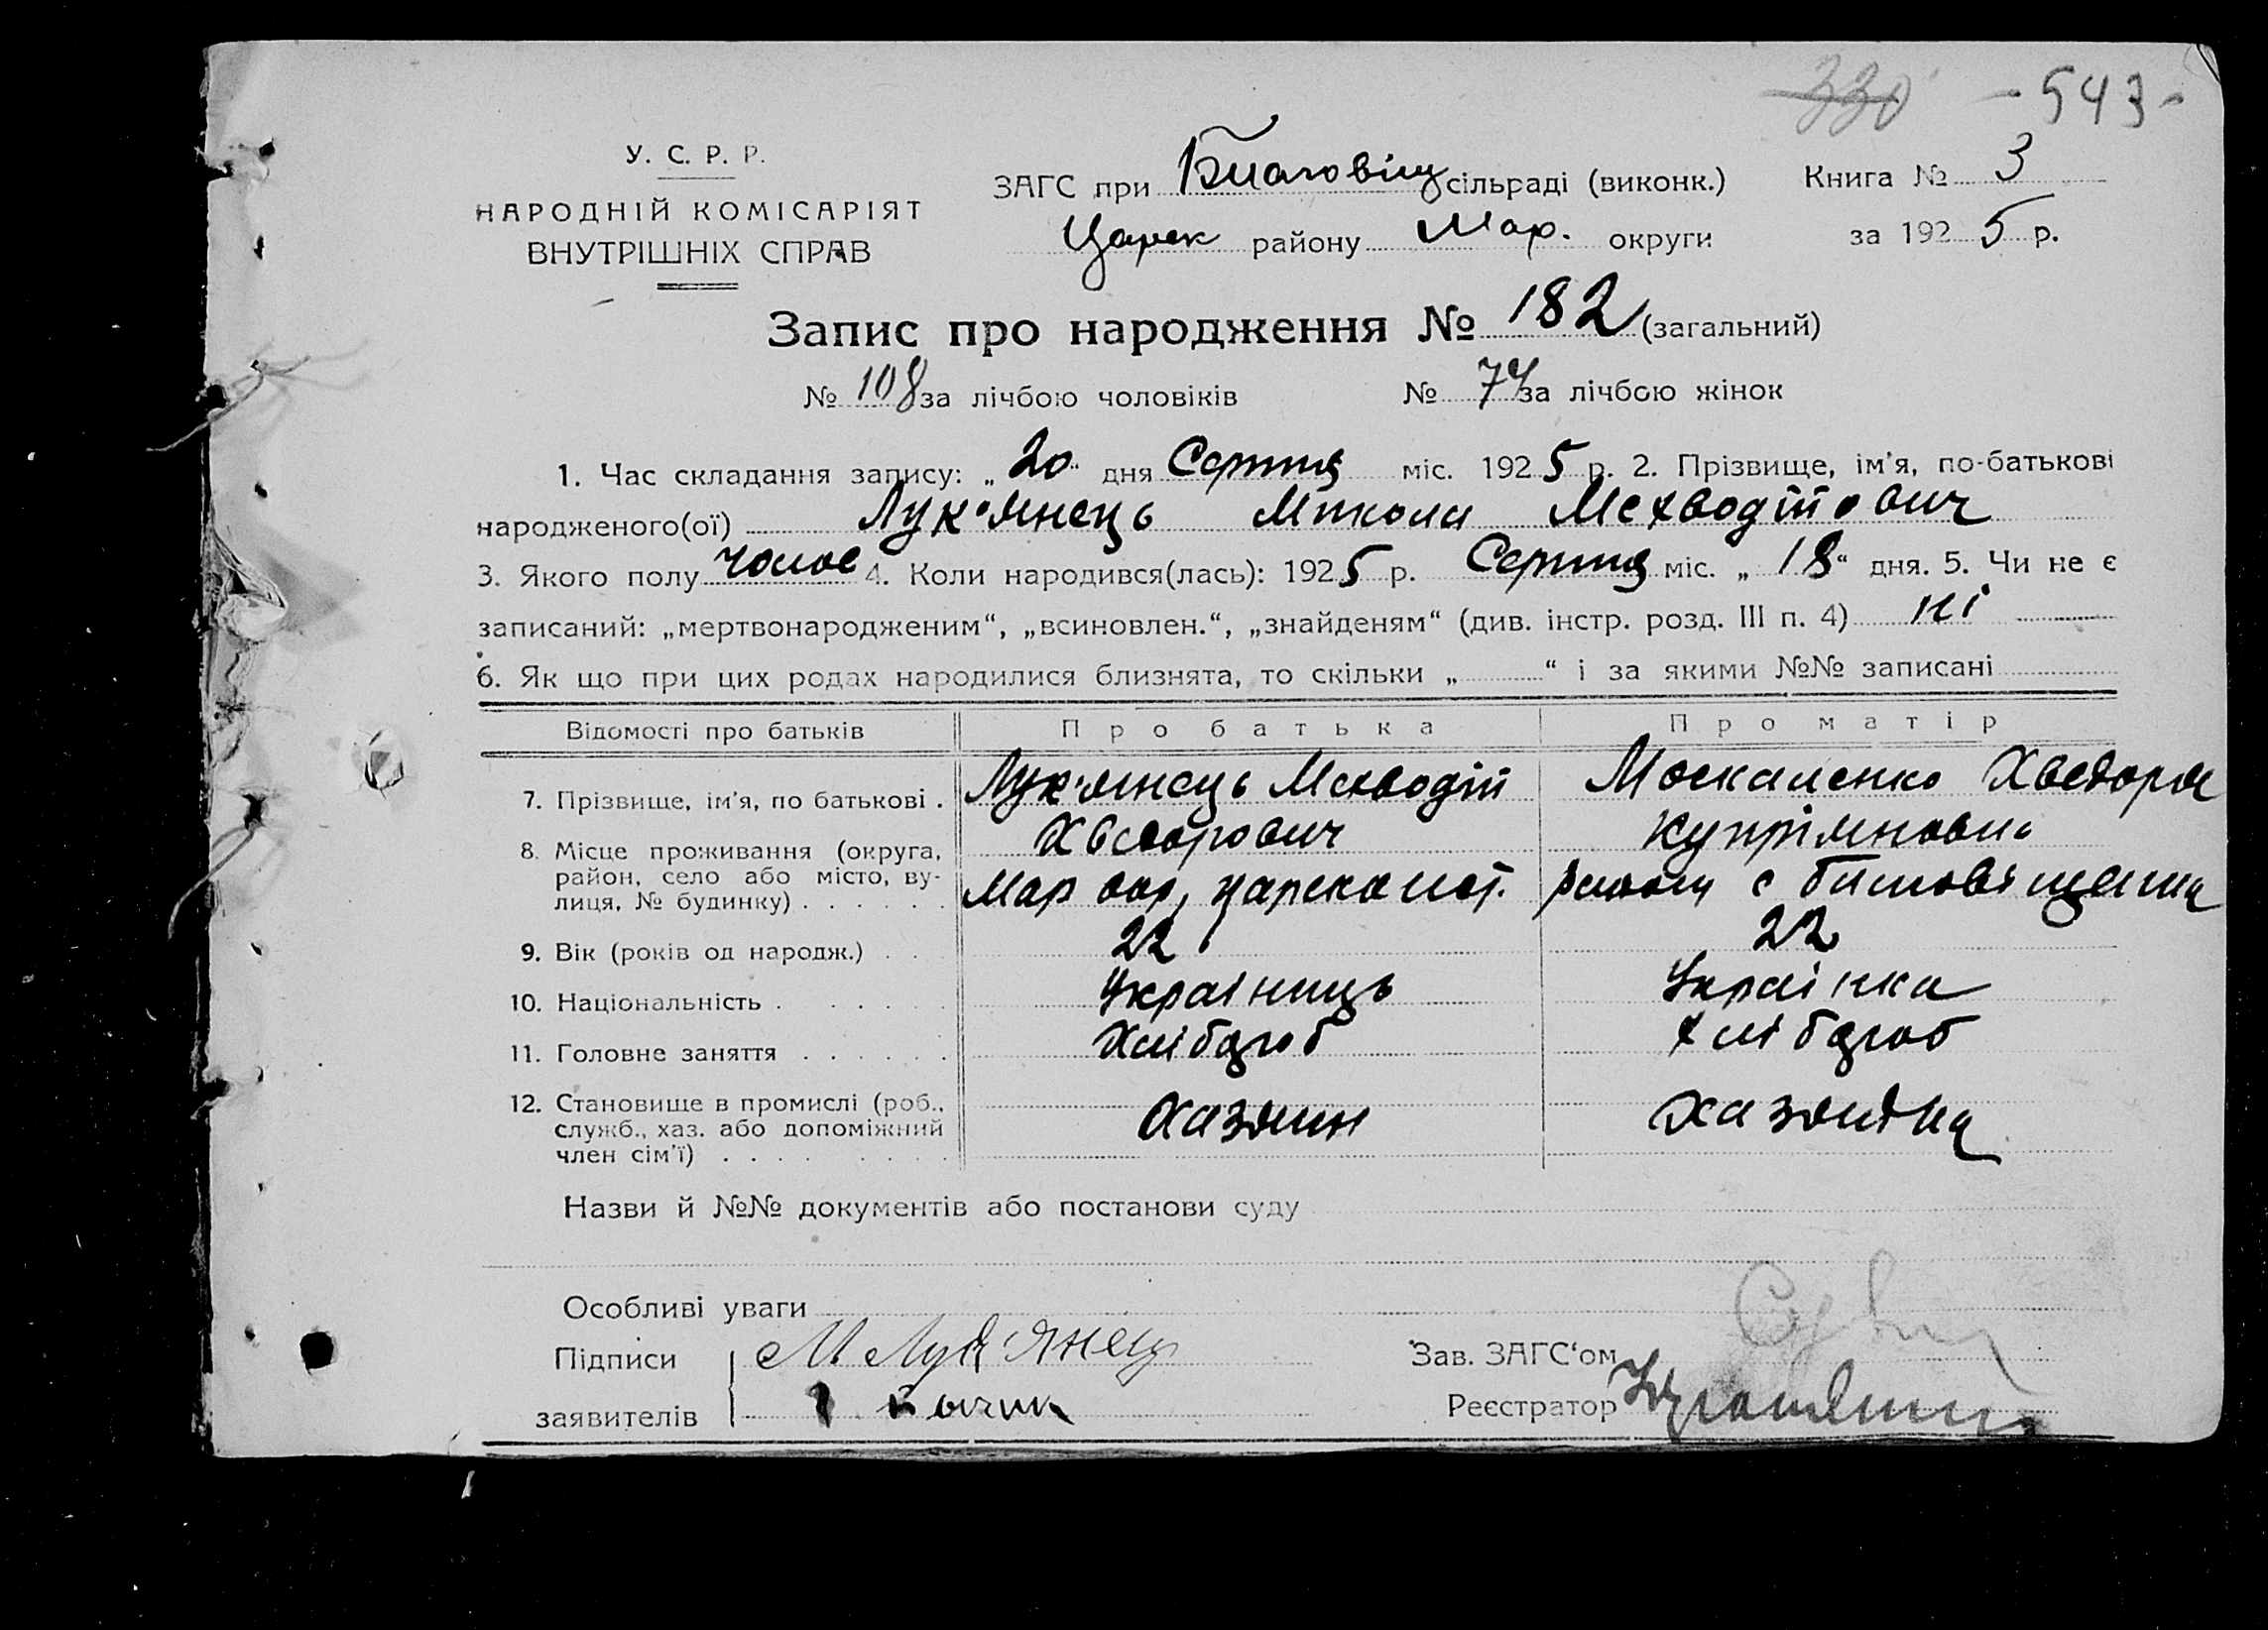 330 - 543 -
У. С. Р. Р.
НАРОДНІЙ КОМІСАРІЯТ
ВНУТРІШНІХ СПРАВ
ЗАГС при Благовіщ сільраді (виконк.) Книга № 3
Царек району Мар. округи за 1925 р.
Запис про народження № 182 (загальний)
№ 108 за лічбою чоловіків № 74 за лічбою жінок
1. Час складання запису: „20“ дня Серпня міс. 1925 р. 2. Прізвище, ім’я, по-батькові
народженого(ої) Лук’янець Микола Мехводійович
3. Якого полу чолов 4. Коли народився(лась): 1925 р. Серпня міс. „18“ дня. 5. Чи не є
записаний: „мертвонародженим“, „всиновлен.“, „знайденям“ (див. інстр. розд. III п. 4) ні
6. Як що при цих родах народилися близнята, то скільки „ “ і за якими №№ записані
Відомості про батьків Про батька Про матір
7. Прізвище, ім’я, по батькові . Лук’янець Мехводій Москаленко Хведора
Хведорович Купріяновна
8. Місце проживання (округа,
район, село або місто, ву-
лиця, № будинку) . . . . . . Мар окр, царекон. району с благовіщенка
9. Вік (років од народж.) . . 22 22
10. Національність . . . . . . Українець Українка
11. Головне заняття . . . . . . Хлібороб хлібороб
12. Становище в промислі (роб.,
служб., хаз. або допоміжний
член сім’ї) . . . . . . . . Хазяин Хазяйка
Назви й №№ документів або постанови суду
Особливі уваги
Підписи М Лук’янец Зав. ЗАГС‘ом
заявителів Реєстратор